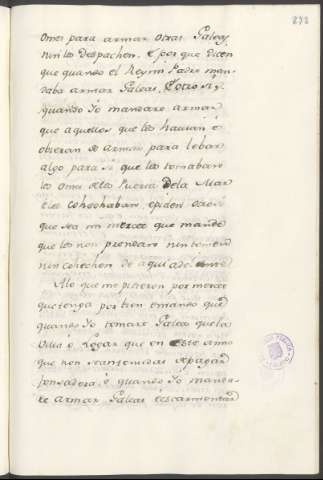 272
omes para armar otras Galeas,
nin los despachen. E por que dicen
que quando el Rey mi Padre man-
daba armar Galeas, E otro si,
quando Yo mandare armar
que aquellos que les havian o
obieran de armar, para lebar
algo para si que les tomaban
los omes de la Puerta de la Mar
e les cohechaban, epiden
que sea mi merced que mande
que los non prendan nin tomen
nin cohechen de aqui adelante
A lo que me pidieron por merced
que tenga por bien e mande que
quando Yo tomare Galeas que la
Villa o Logar que en este armo
que non sean tenudas de pagar
fonsadera, e quando Yo manda-
re armar Galeas e escarmentar